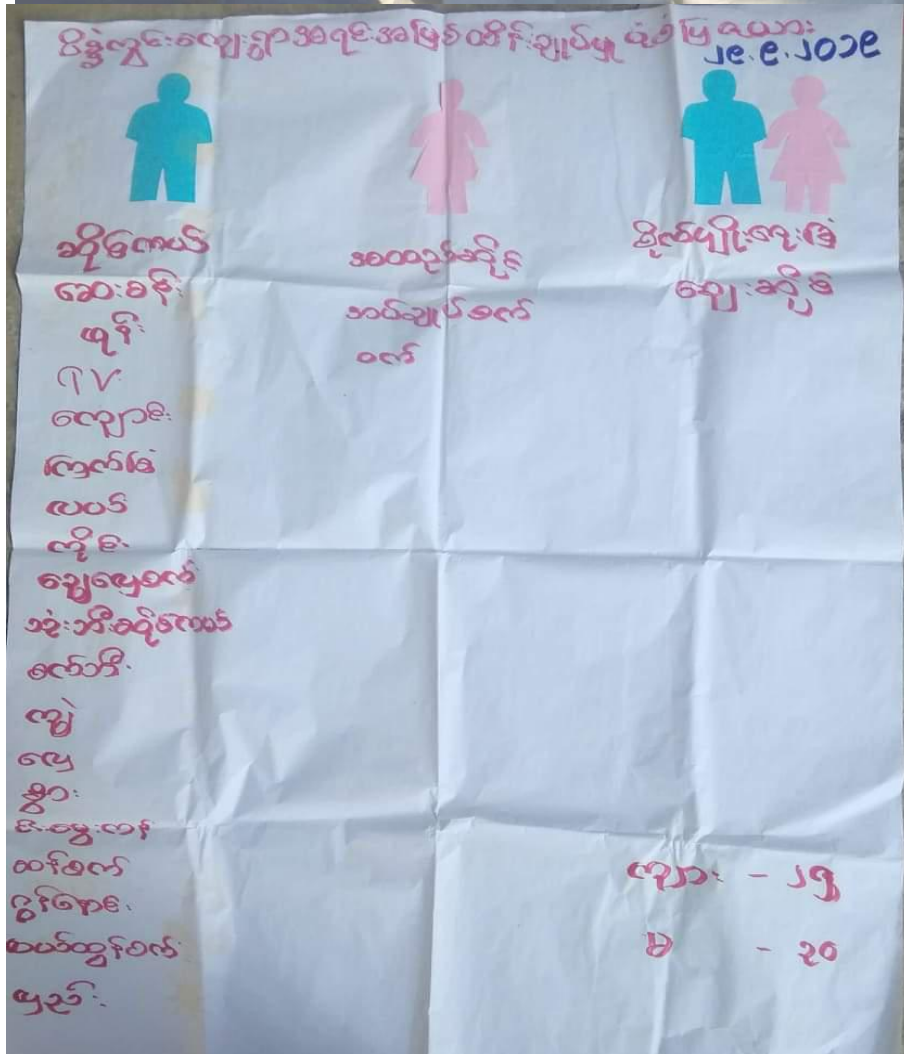 ကျေးရွာအရင်းအမြစ်ထိန်းချုပ်မှု ပုံစံပြဇယား
၂၉.၉.၂၀၁၉
ဆိုင်ကယ်
ဆေးခန်း
ဖုန်း
TV
ကျောင်း
ကြက်ခြံ
လယ်
ကိုင်း
ချွေလှေ့စက်
သုံးဘီးဆိုင်ကယ်
စက်ဘီး
ကျွဲ
လှေ
နွား
ငါးမွေးကန်
ဆန်စက်
ထယ်ထွန်စက်
လှည်း
အထည်ဆိုင်
အပ်ချုပ်စက်
ဝက်
စိုက်ပျိုးရေးခြံ
ဈေးဆိုင်
ကျား - ၂၅
မ - ၃၀